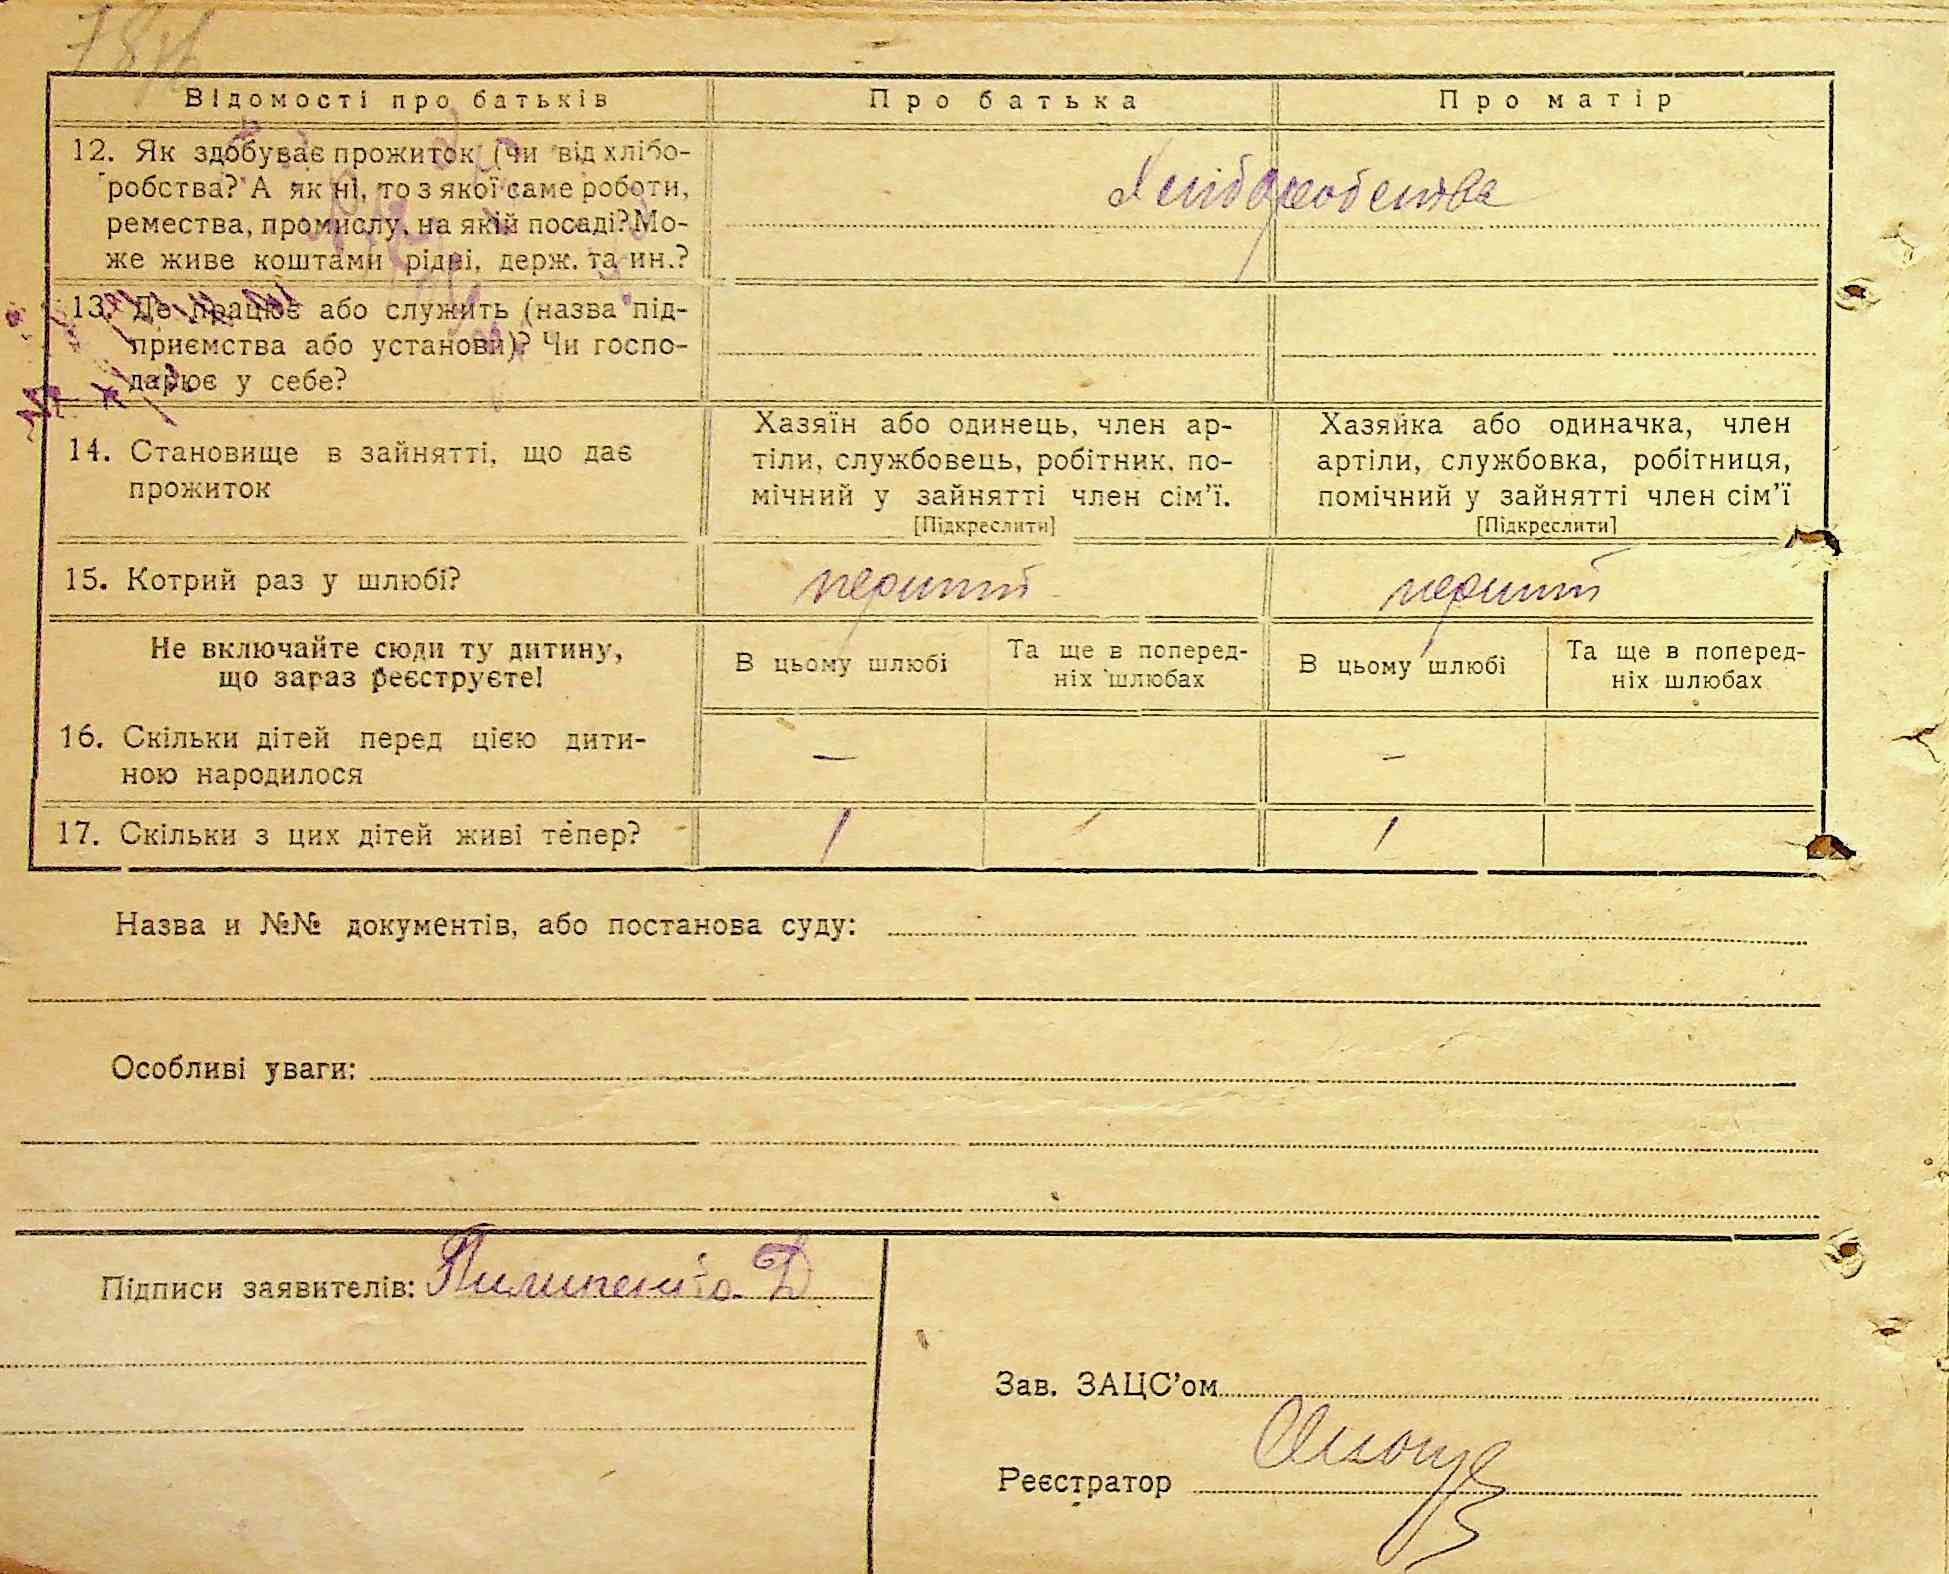 Відомості про батьків
Про батька
Про матір
12. Як здобуває прожиток (чи від хлібо-
робства? А як ні, то з якої саме роботи,
ремества, промислу, на якій посаді? Мо-
же живе коштами рідні, держ. та ин.?
Хліборобства
13. Де працює або служить (назва під-
приємства або установи)? Чи госпо-
дарює у себе?
14. Становище в зайнятті, що дає
прожиток
Хазяїн або одинець, член ар-
тіли, службовець, робітник, по-
мічний у зайнятті член сім'ї.
[Підкреслити]
Хазяйка або одиначка, член
артіли, службовка, робітниця,
помічний у зайнятті член сім'ї
[Підкреслити]
15. Котрий раз у шлюбі?
перший
перший
Не включайте сюди ту дитину,
що зараз реєструєте!
В цьому шлюбі
Та ще в поперед-
ніх шлюбах
В цьому шлюбі
Та ще в поперед-
ніх шлюбах
16. Скільки дітей перед цією дити-
ною народилося
—
–
17. Скільки з цих дітей живі тепер?
1
1
Назва и №№ документів, або постанова суду:
Особливі уваги:
Підписи заявителів: Пилипенко Д
Зав. ЗАЦС'ом
Реєстратор